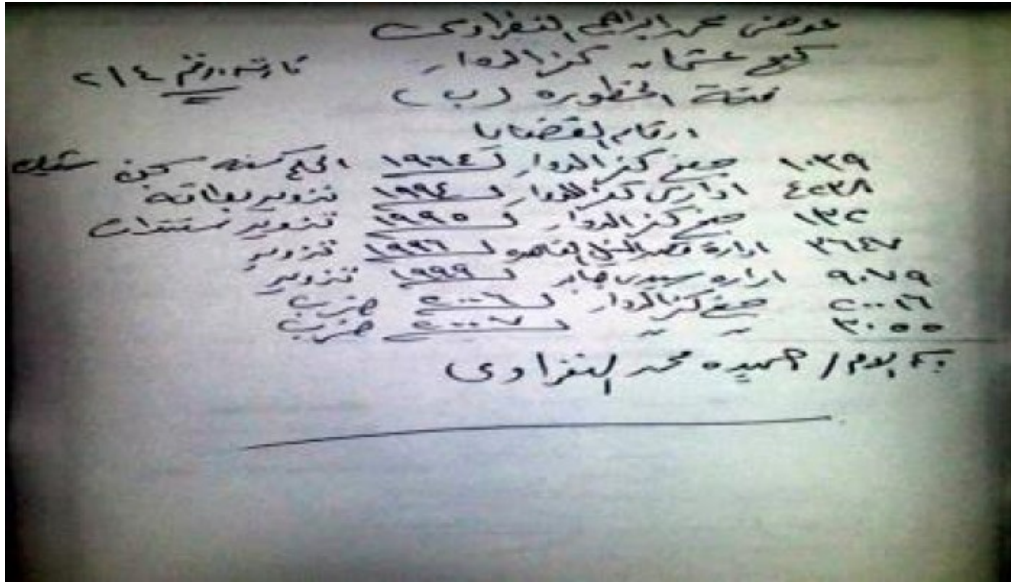 عوض محمد ابراهيم النفراوى
كفر الدوار كارته رقم ٢١٤
فئة الخطوره (ب)
ارقام القضايا
١٠٣٩ جنح كفر الدوار لـ ١٩٦٤ الحكم سنه سجن
٤٢٣٨ ادارى كفر الدوار لـ ١٩٩٤ تزوير بطاقه
١٣٢ جنح كفر الدوار لـ ١٩٩٥ تزوير مستندات
٣٦٤٧ ادارة قصر النيل القاهره لـ ١٩٩٦ تزوير
٩٠٧٩ اداره سيدى جابر لـ ١٩٩٩ تزوير
٢٠٠١٦ جنح كفر الدوار لـ ٢٠٠٦ ضرب
٣٠٥٥ لـ ٢٠٠٧ ضرب
الام / حميده محمد النفراوى